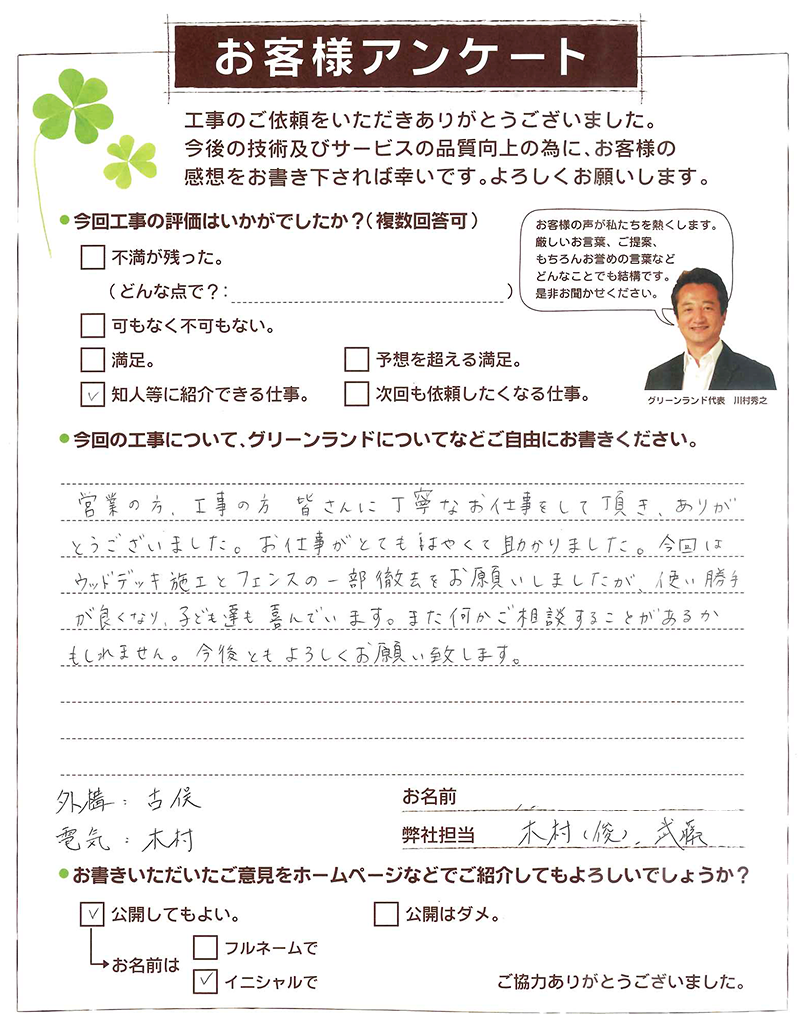 お客様アンケート
工事のご依頼をいただきありがとうございました。
今後の技術及びサービスの品質向上の為に、お客様の
感想をお書き下されば幸いです。よろしくお願いします。
●今回工事の評価はいかがでしたか？（複数回答可）
お客様の声が私たちを熱くします。
厳しいお言葉、ご提案、
もちろんお誉めの言葉など
どんなことでも結構です。
是非お聞かせください。
不満が残った。
（どんな点で？：　）
可もなく不可もない。
満足。
予想を超える満足。
✓ 知人等に紹介できる仕事。
次回も依頼したくなる仕事。
グリーンランド代表　川村秀之
●今回の工事について、グリーンランドについてなどご自由にお書きください。
営業の方、工事の方 皆さんに丁寧なお仕事をして頂き、ありが
とうございました。お仕事がとてもはやくて助かりました。今回は
ウッドデッキ施工とフェンスの一部徹去をお願いしましたが、使い勝手
が良くなり、子ども達も喜んでいます。また何かご相談することがあるか
もしれません。今後ともよろしくお願い致します。
外構：古俣
電気：木村
お名前
弊社担当 木村（俊）、武藤
●お書きいただいたご意見をホームページなどでご紹介してもよろしいでしょうか？
✓ 公開してもよい。
公開はダメ。
お名前は
フルネームで
✓ イニシャルで
ご協力ありがとうございました。